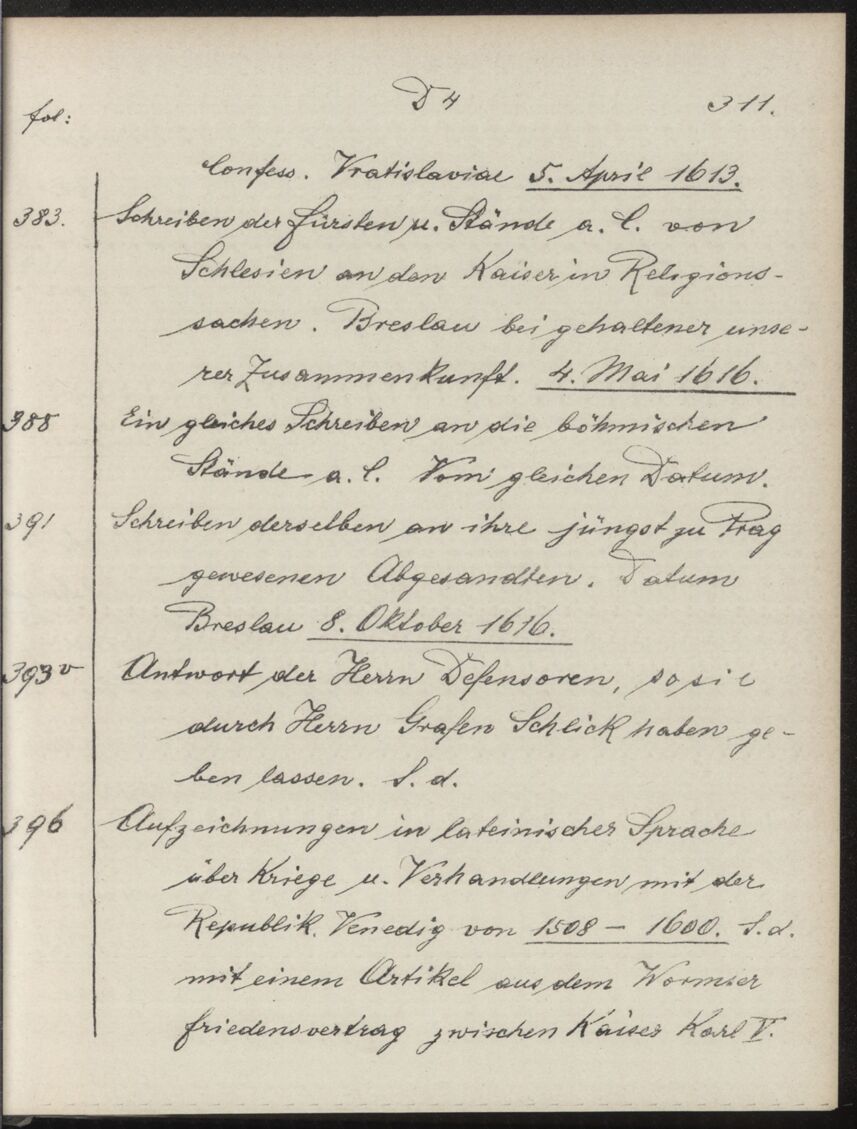 D 4 311.
fol:
Confess. Vratislaviae 5. April 1613.
383. Schreiben der Fürsten u. Stände a. C. von
Schlesien an den Kaiser in Religions-
sachen. Breslau bei gehaltener unse-
rer Zusammenkunft. 4. Mai 1616.
388 Ein gleiches Schreiben an die böhmischen
Stände a. C. Vom gleichen Datum.
391 Schreiben derselben an ihre jüngst zu Prag
gewesenen Abgesandten. Datum
Breslau 8. Oktober 1616.
393v Antwort der Herrn Defensoren, so sie
durch Herrn Grafen Schlick haben ge-
ben lassen. S. d.
396 Aufzeichnungen in lateinischer Sprache
über Kriege u. Verhandlungen mit der
Republik Venedig von 1508 - 1600. S. d.
mit einem Artikel aus dem Wormser
Friedensvertrag zwischen Kaiser Karl V.